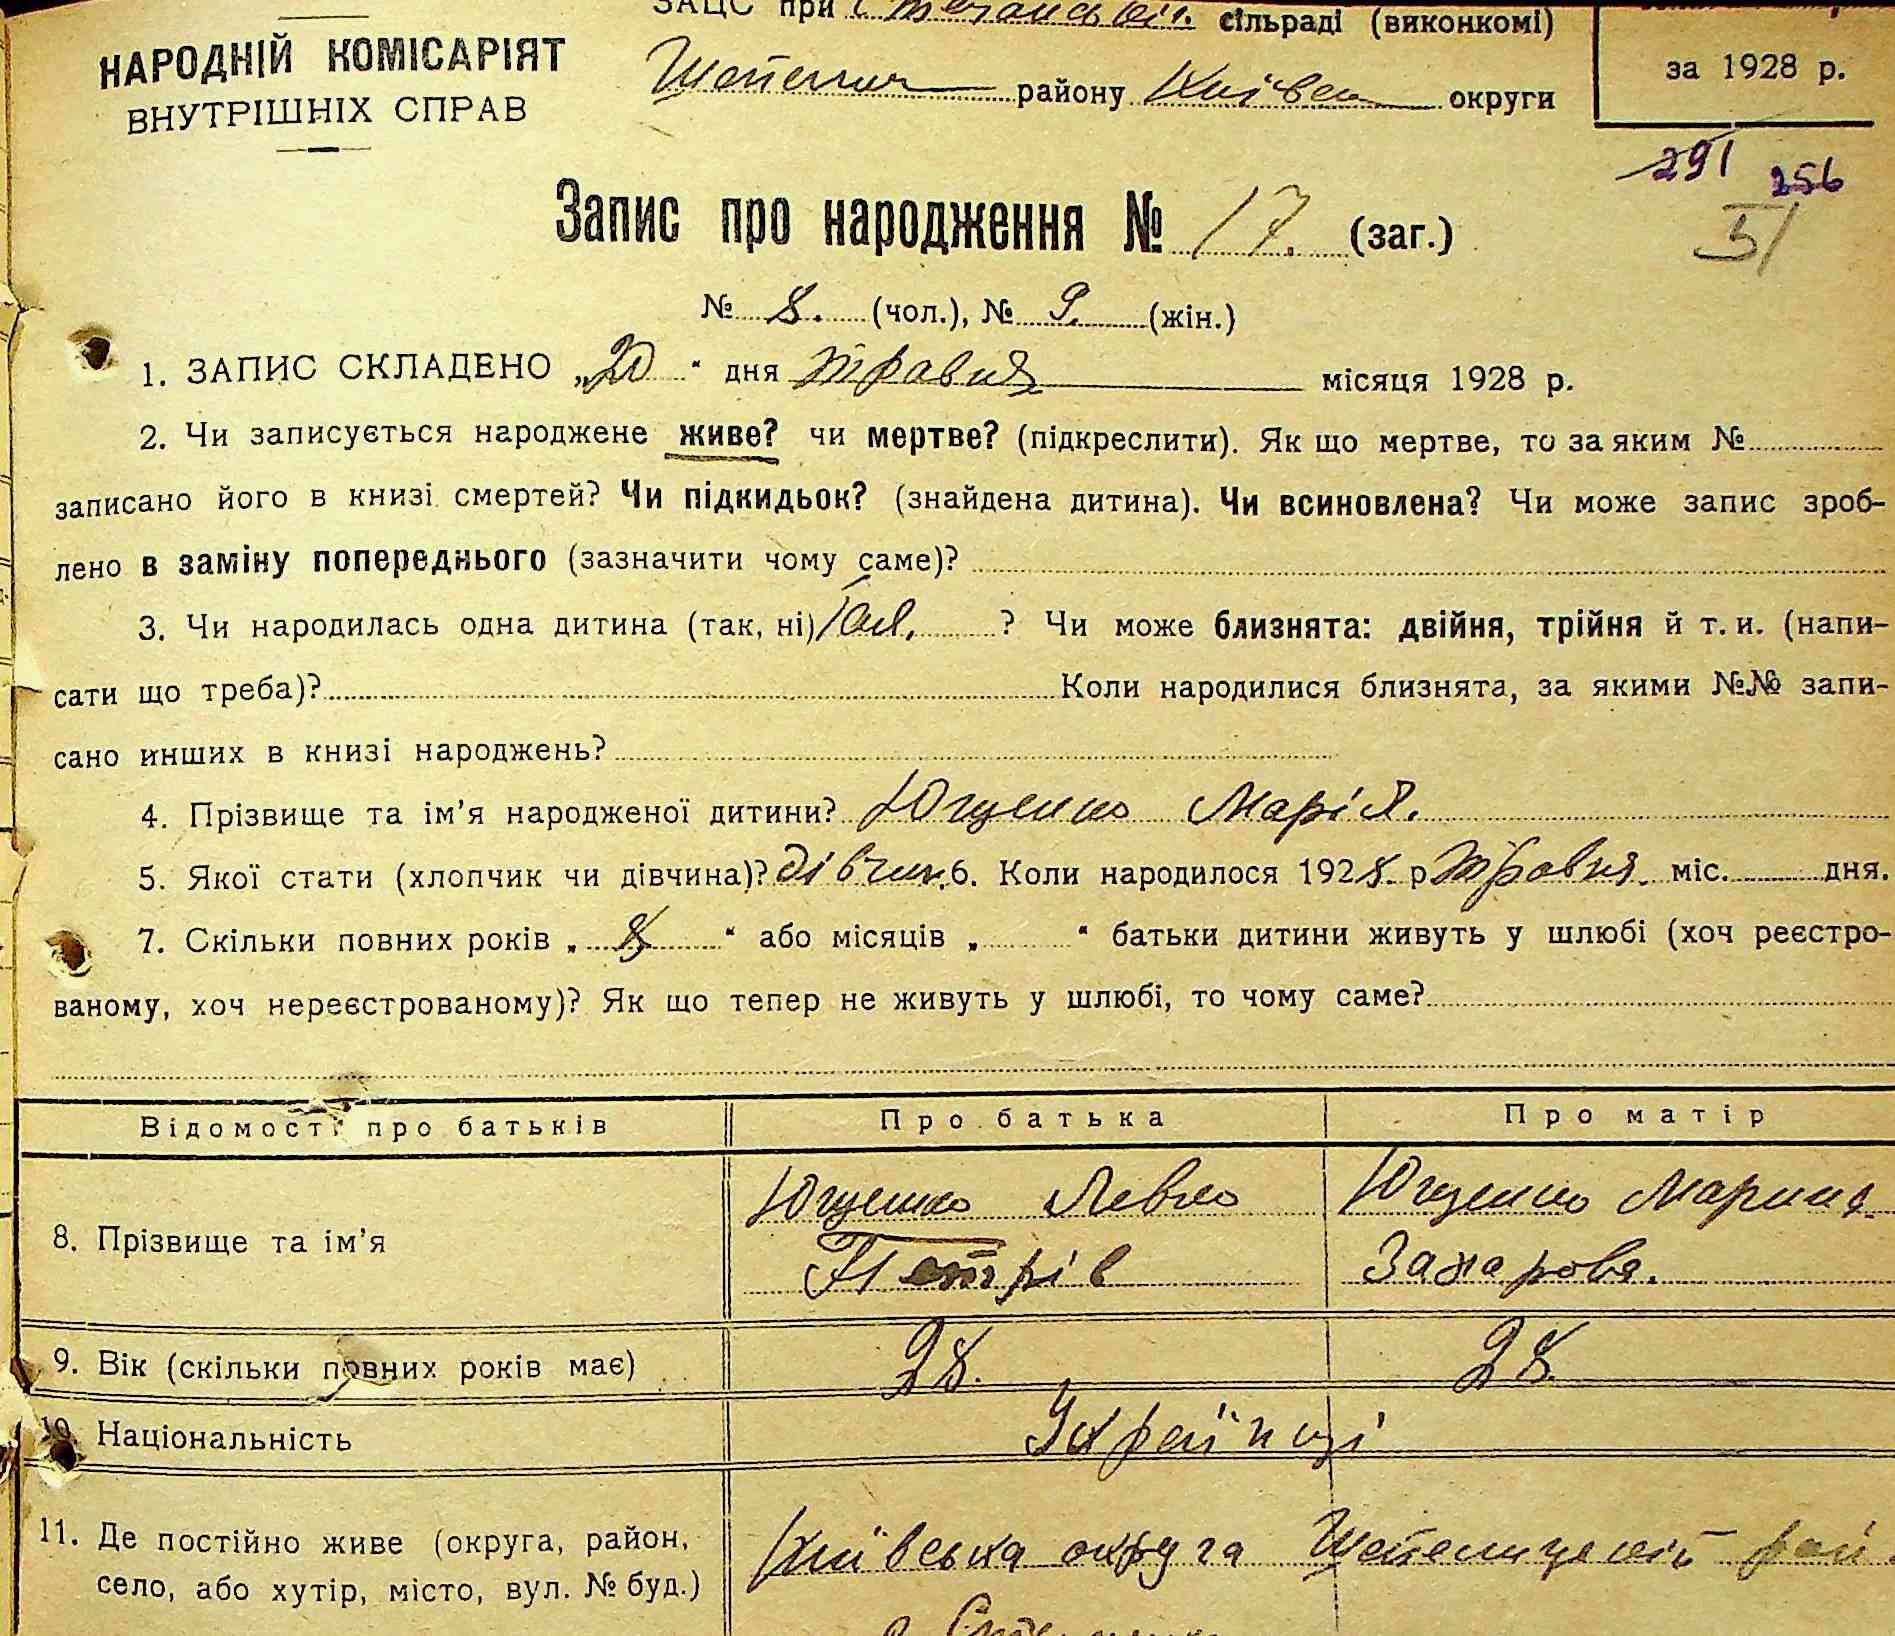 ЗАЦС при Стечанській сільраді (виконкомі)
НАРОДНІЙ КОМІСАРІЯТ
ВНУТРІШНІХ СПРАВ
Шепелич району Київськ округи
за 1928 р.
291 256
51
Запис про народження № 17. (заг.)
№ 8. (чол.), № 9. (жін.)
1. ЗАПИС СКЛАДЕНО „20“ дня травня місяця 1928 р.
2. Чи записується народжене живе? чи мертве? (підкреслити). Як що мертве, то за яким №
записано його в книзі смертей? Чи підкидьок? (знайдена дитина). Чи всиновлена? Чи може запис зроб-
лено в заміну попереднього (зазначити чому саме)?
3. Чи народилась одна дитина (так, ні) Одна. ? Чи може близнята: двійня, трійня й т. и. (напи-
сати що треба)? Коли народилися близнята, за якими №№ запи-
сано инших в книзі народжень?
4. Прізвище та ім'я народженої дитини? Ющенко Марія.
5. Якої стати (хлопчик чи дівчина)? дівчин. 6. Коли народилося 1928. р травня. міс. дня.
7. Скільки повних років „ 8 “ або місяців „ “ батьки дитини живуть у шлюбі (хоч реєстро-
ваному, хоч нереєстрованому)? Як що тепер не живуть у шлюбі, то чому саме?
Відомості про батьків Про батька Про матір
8. Прізвище та ім'я Ющенко Левко Ющенко Марина
Петрів Захарова.
9. Вік (скільки повних років має) 28. 28.
10. Національність Українці
11. Де постійно живе (округа, район, Київська округа Шепелицький рай.
село, або хутір, місто, вул. № буд.)